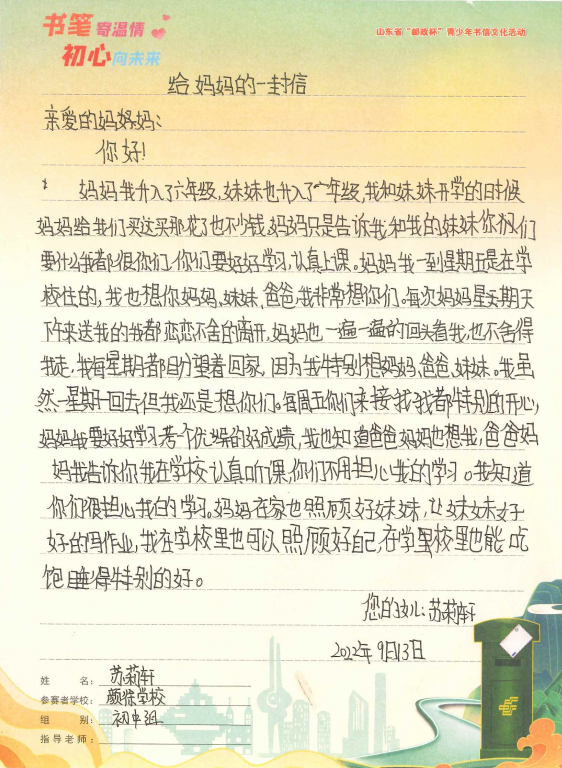 书笔寄温情
初心向未来
山东省“邮政杯”青少年书信文化活动
给妈妈的一封信
亲爱的妈妈:
你好!
妈妈我升入了六年级,妹妹也升入了一年级,我和妹妹开学的时候
妈妈给我们买这买那花了也不少钱,妈妈只是告诉我和我的妹妹你们
要什么我都很你们,你们要好好学习,认真上课。妈妈我一到星期五是在学
校住的,我也想你妈妈、妹妹、爸爸我非常想你们。每次妈妈星期天
下午来送我的我都恋恋不舍的离开,妈妈也一遍一遍的回头看我,也不舍得
我走,我每星期都盼望着回家,因为我特别想妈妈、爸爸、妹妹。我虽
然一星期一回去但我还是想你们。每周五你们来接我我都特别的开心,
妈妈我要好好学习考个优异的好成绩,我也知道爸爸妈妈也想我,爸爸妈
妈我告诉你我在学校认真听课,你们不用担心我的学习。我知道
你们很担心我的学习。妈妈在家也照顾好妹妹,让妹妹好
好的写作业,我在学校里也可以照顾好自己,在学校里也能吃
饱睡得特别的好。
您的女儿:苏莉轩
2022年9月13日
姓名:苏莉轩
参赛者学校:颜徐学校
组别:初中组
指导老师: